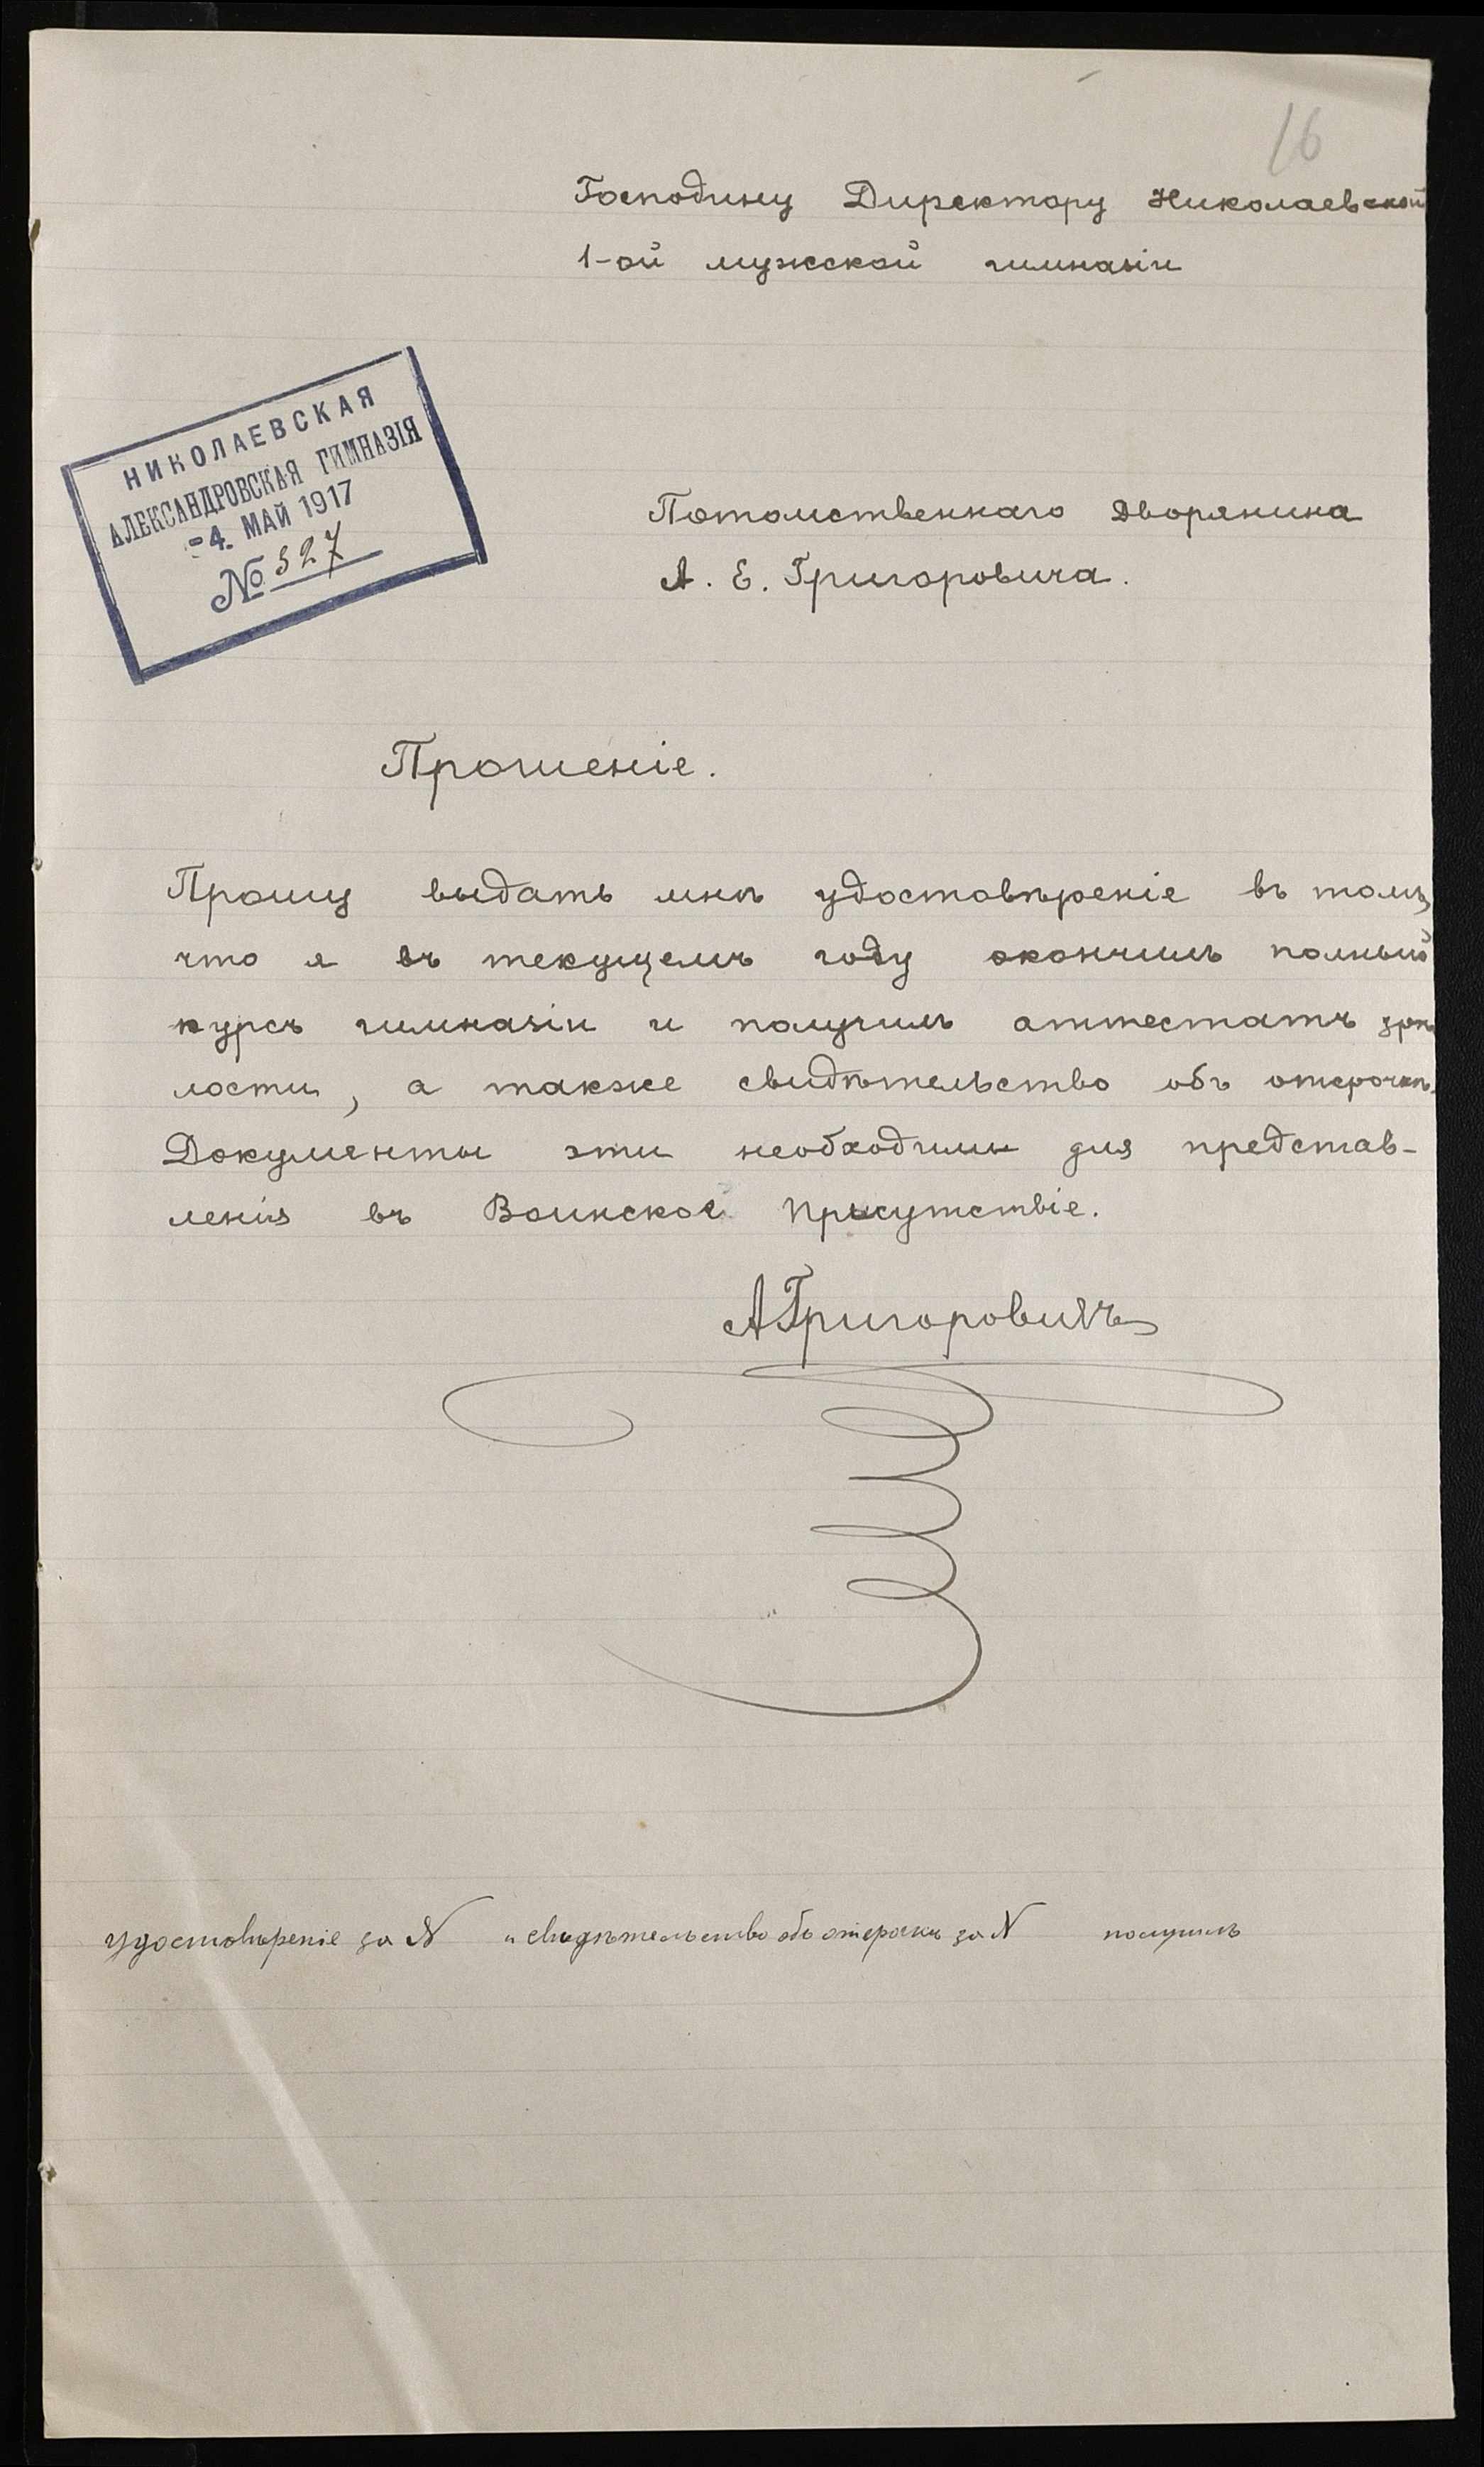 16
Господину Директору Николаевской
1-ой мужской гимназіи
НИКОЛАЕВСКАЯ
АЛЕКСАНДРОВСКАЯ ГИМНАЗІЯ
-4. МАЙ 1917
№ 327
Потомственнаго Дворянина
А. Е. Григоровича.
Прошеніе.
Прошу выдать мнѣ удостовѣреніе въ томъ,
что я въ текущемъ году окончилъ полный
курсъ гимназіи и получилъ аттестатъ зрѣ
лости, а также свидѣтельство объ отсрочкѣ.
Документы эти необходимы для представ-
ленія въ Воинское Присутствіе.
АГригоровичъ
удостовѣреніе за N и свидѣтельство объ отсрочкѣ за N получилъ